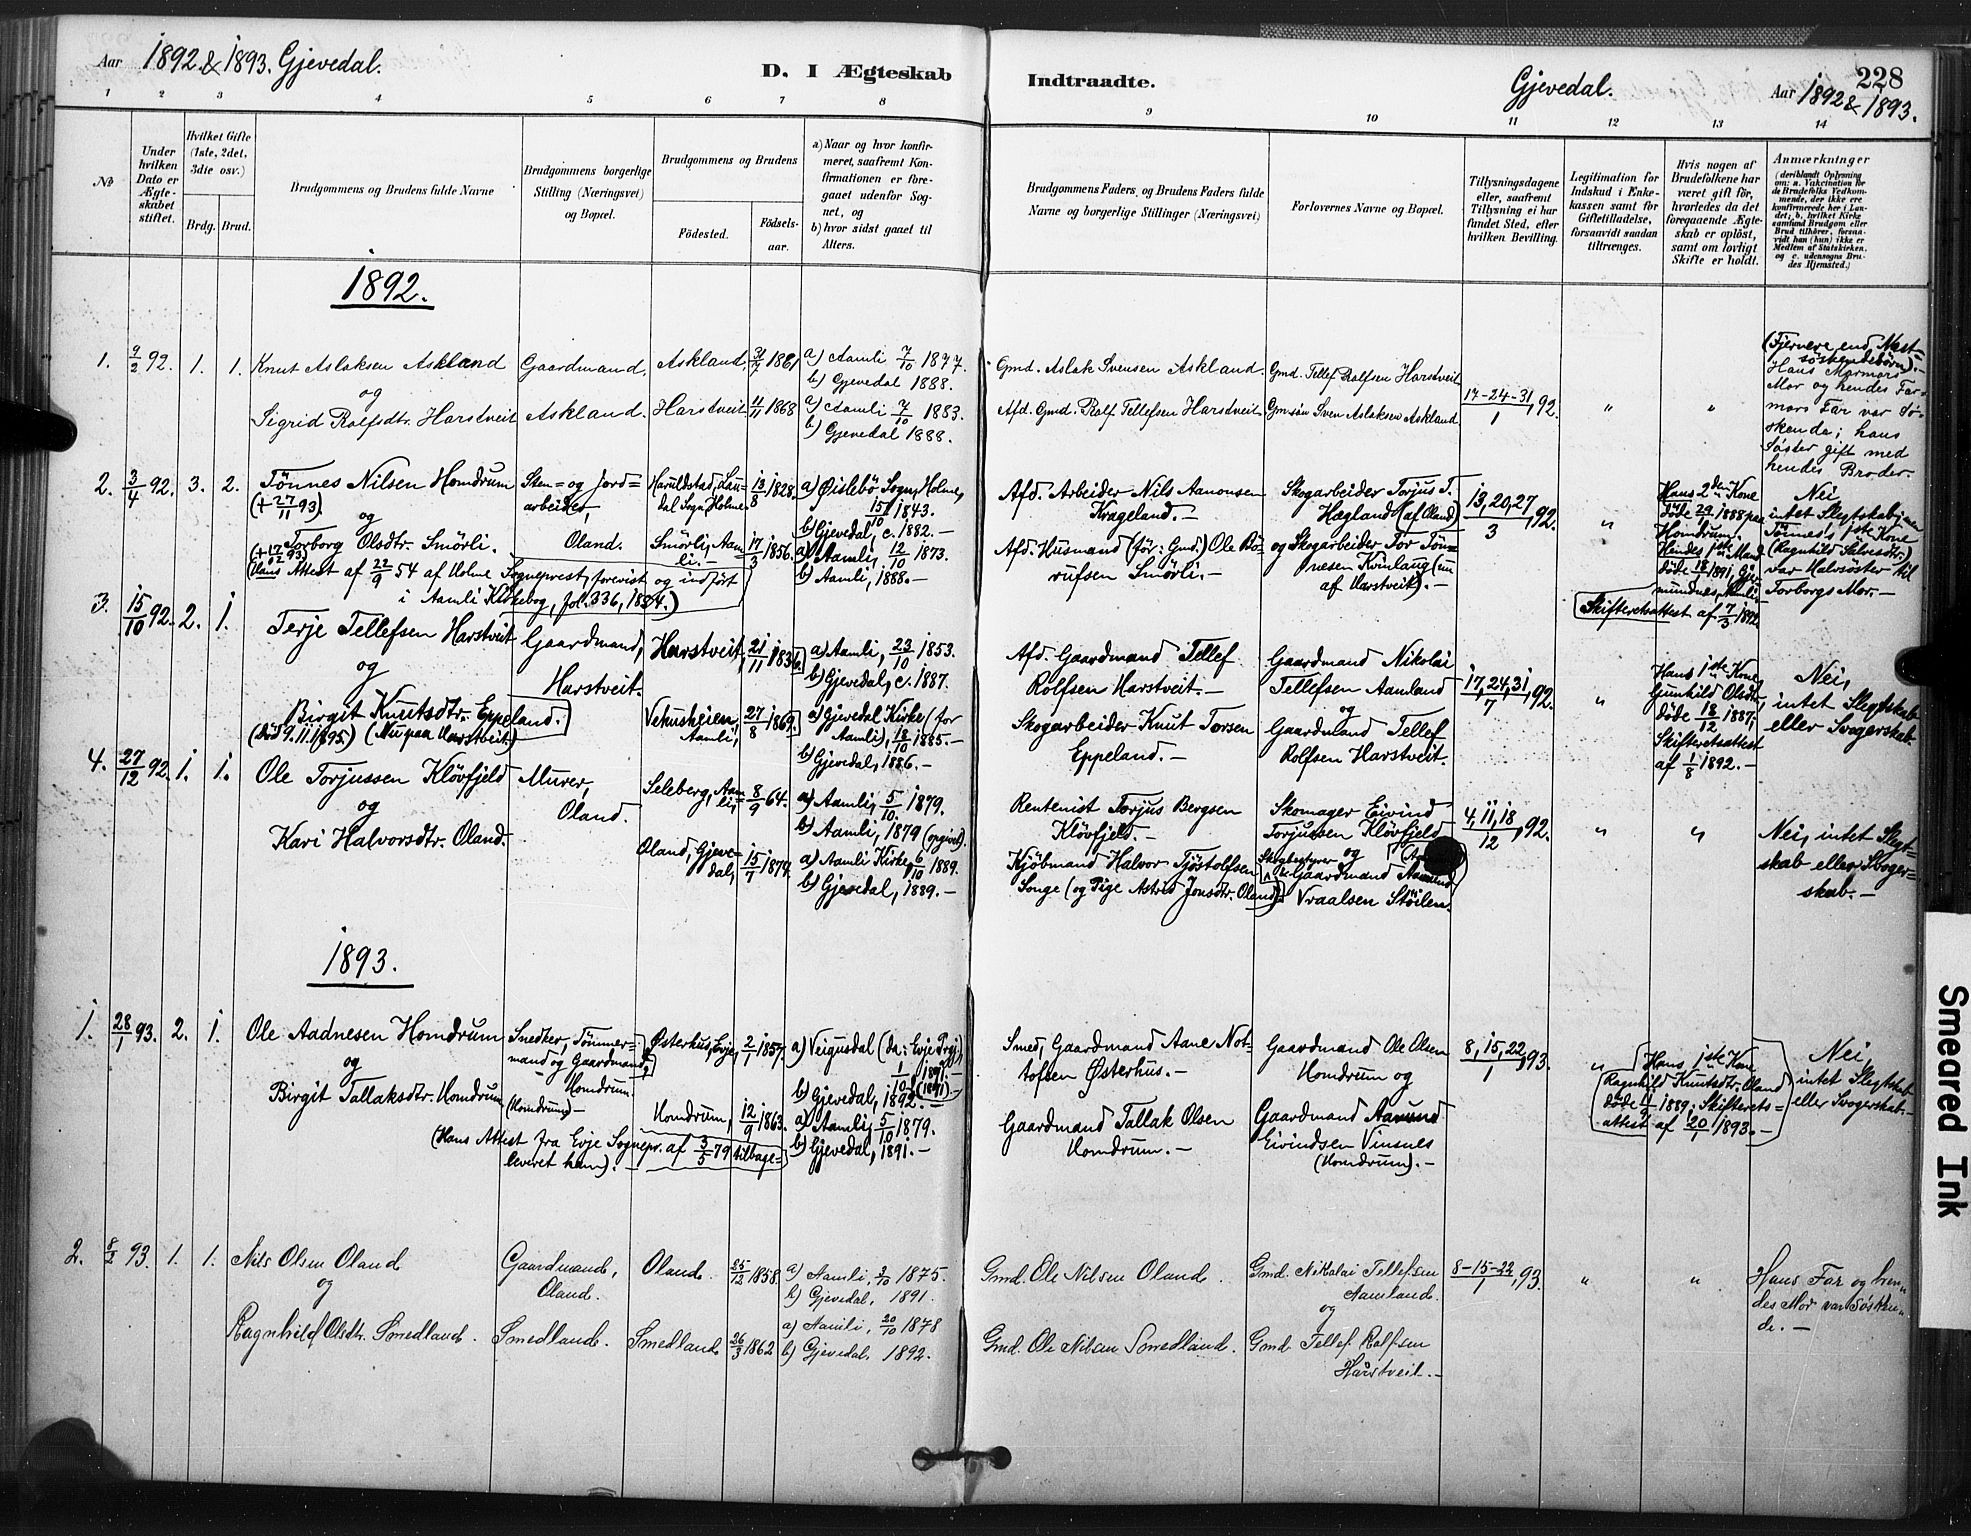 Aar 1892 & 1893. Gjevedal.
D. I Ægteskab Indtraadte.
Gjevedal.
228
Aar 1892 & 1893.
1 2 3 4 5 6 7 8 9 10 11 12 13 14
No
Under hvilken Dato er Ægteskabet stiftet.
Hvilket Gifte (1ste, 2det, 3die osv.)
Brdg. Brud.
Brudgommens og Brudens fulde Navne
Brudgommens borgerlige Stilling (Næringsvei) og Bopæl.
Brudgommens og Brudens
Fødested.
Fødselsaar.
a) Naar og hvor konfirmeret, saafremt Konfirmationen er foregaaet udenfor Sognet, og
b) hvor sidst gaaet til Alters.
Brudgommens Faders, og Brudens Faders fulde Navne og borgerlige Stillinger (Næringsvei)
Forlovernes Navne og Bopæl.
Tillysningsdagene eller, saafremt Tillysning ei har fundet Sted, efter hvilken Bevilling.
Legitimation for Indskud i Enkekassen samt for Giftetilladelse, forsaavidt saadan tiltrænges.
Hvis nogen af Brudefolkene har været gift før, hvorledes da det foregaaende Ægteskab er opløst, samt om lovligt Skifte er holdt.
Anmærkninger
(deriblandt Oplysning om: a. Vakcination for de Brudefolks Vedkommende, der ikke ere konfirmerede her i Landet; b, hvilket Kirkesamfund Brudgom eller Brud tilhører, forsaavidt han (hun) ikke er Medlem af Statskirken, og c. udensogns Brudes Hjemsted.)
1892.
1. 9/2 92. 1. 1. Knut Aslaksen Askland
og
Sigrid Rolfsdtr. Harstveit
Gaardmand,
Askland.
Askland, 31/7 1861
Harstveit 11/11 1868
a) Aamli 7/10 1877.
b) Gjevedal 1888.
a) Aamli 7/10 1883.
b) Gjevedal 1888.
Gmd. Aslak Svensen Askland.
Afd. Gmd. Rolf Tellefsen Harstveit
Gmd. Tellef Rolfsen Harstveit
Gmsøn Sven Aslaksen Askland
17-24-31/1, 92.
" "
(Fjernere end Næstsøskendebørn).-
Hans Mormors
Mor og hendes Farmors
Far var Søskende;
hans
Søster gift med
hendes Broder.
2. 3/4 92. 3. 2. Tönnes Nilsen Homdrum
(+ 27/11 93)
og
Torborg Olsdtr. Smörli.
(Hans Attest af 22/9 54 af Holme Sogneprest, forevist og indført
i Aamli Kirkebog, fol. 336, 1884.)
Sten= og Jord=
arbeider,
Oland.
Haruldstad, Laudal
Sogn, Holme 13/8 1828.
Smörli, Aamli.- 17/3 1856.
a) Øislebö Sogn, Holme,
15/10 1843.
b) Gjevedal, c. 1882.-
a) Aamli, 12/10 1873.
b) Aamli, 1888.-
Afd. Arbeider Nils Aanonsen
Krageland.-
Afd. Husmand (för: Gmd.) Ole Börufsen
Smörli.-
Skogarbeider Torjus T.
Hægland (af Oland)
og Skogarbeider Tor Tönnesen
Kvinlaug (nu
af Harstveit).-
13, 20, 27/3, 92.
"
Hans 2den Kone
døde 29/2 1888 paa
Homdrum.
Hendes 1ste Mand
døde 18/1 1891, Gjermundnes, Aamli.-
Skifteretsattest af 7/3 1892.
Nei,
intet Slegtskab; men
Tönnes's 1ste Kone
(Ragnhild Salvesdtr.)
var Halvsøster til
Torborgs Mor.-
3. 15/10 92. 2. 1. Terje Tellefsen Harstveit
og
Birgit Knutsdtr. Eppeland.
(död 9.11.1895.) (Nu paa Harstveit.)
Gaardmand,
Harstveit.
Harstveit, 21/11 1836.
Vehusheien, Aamli, 27/8 1869.
a) Aamli, 23/10 1853.
b) Gjevedal, c. 1887.
a) Gjevedal Kirke (for
Aamli), 18/10 1885.-
b) Gjevedal, 1886.-
Afd. Gaardmand Tellef
Rolfsen Harstveit.-
Skogarbeider Knut Torsen
Eppeland.-
Gaardmand Nikolai
Tellefsen Aamland
og
Gaardmand Tellef
Rolfsen Harstveit.
17, 24, 31/7, 92.
"
Hans 1ste Kone,
Gunhild Olsdtr.
døde 18/12 1887;
Skifteretsattest
af 1/8 1892.-
Nei,
intet Slegtskab
eller Svogerskab.
4. 27/12 92. 1. 1. Ole Torjussen Klövfjeld
og
Kari Halvorsdtr. Oland.
Murer,
Oland.
Seleberg, Aamli, 8/9 64.
Oland, Gjevedal, 15/7 1874.
a) Aamli, 5/10 1879.
b) Aamli, 1879 (opgivet).
a) Aamli Kirke, 6/10 1889.
b) Gjevedal, 1889.-
Rentenist Torjus Bergsen
Klövfjeld.-
Kjöbmand Halvor Tjöstolfsen
Songe (og Pige Astrid Jonsdtr. Oland).
Skomager Eivind
Torjussen Klövfjeld
og
Skogbestyrer
Gaardmand Aamund
Vraalsen Stöilen.
4, 11, 18/12, 92.
" "
Nei, intet Slegtskab
eller Svogerskab.-
1893.
1. 28/1 93. 2. 1. Ole Aadnesen Homdrum
og
Birgit Tallaksdtr. Homdrum
(Hans Attest fra Evje Sognepr. af 3/5 79 tilbageleveret
ham).-
Snedker, Tömmermand
og Gaardmand,
Homdrum.
(Homdrum)-
Østerhus, Evje, 2/1 1857.
Homdrum, 12/9 1863.
a) Veigusdal (da: Evje Prgj.)
1/10 1871.- (1871)-
b) Gjevedal, 1892.-
a) Aamli, 5/10 1879.
b) Gjevedal, 1891.-
Smed, Gaardmand Aane Nottofsen
Østerhus.-
Gaardmand Tallak Olsen
Homdrum.-
Gaardmand Ole Olsen
Homdrum og
Gaardmand Aamund
Eivindsen Vinsnes
(Homdrum).-
8, 15, 22/1, 93.
"
Hans 1ste Kone
Ragnhild Knutsdtr. Oland
døde 1889; Skifteretsattest
af 20/1 1893.-
Nei,
intet Slegtskab
eller Svogerskab.-
2. 8/2 93. 1. 1. Nils Olsen Oland
og
Ragnhild Olsdtr. Smedland.
Gaardmand,
Oland.
Smedland.
Oland. 25/12 1858.
Smedland 26/3 1862
a) Aamli, 3/10 1875.
b) Gjevedal, 1891.
a) Aamli, 20/10 1878
b) Gjevedal, 1892.
Gmd. Ole Nilsen Oland.
Gmd. Ole Nilsen Smedland.
Gmd. Nikolai Tellefsen
Aamland.
og
Gmd. Tellef Rolfsen
Hårstveit.-
8-15-22/1, 93.
" "
Hans Far og hendes
Mor var Søskende.-
Smeared Ink